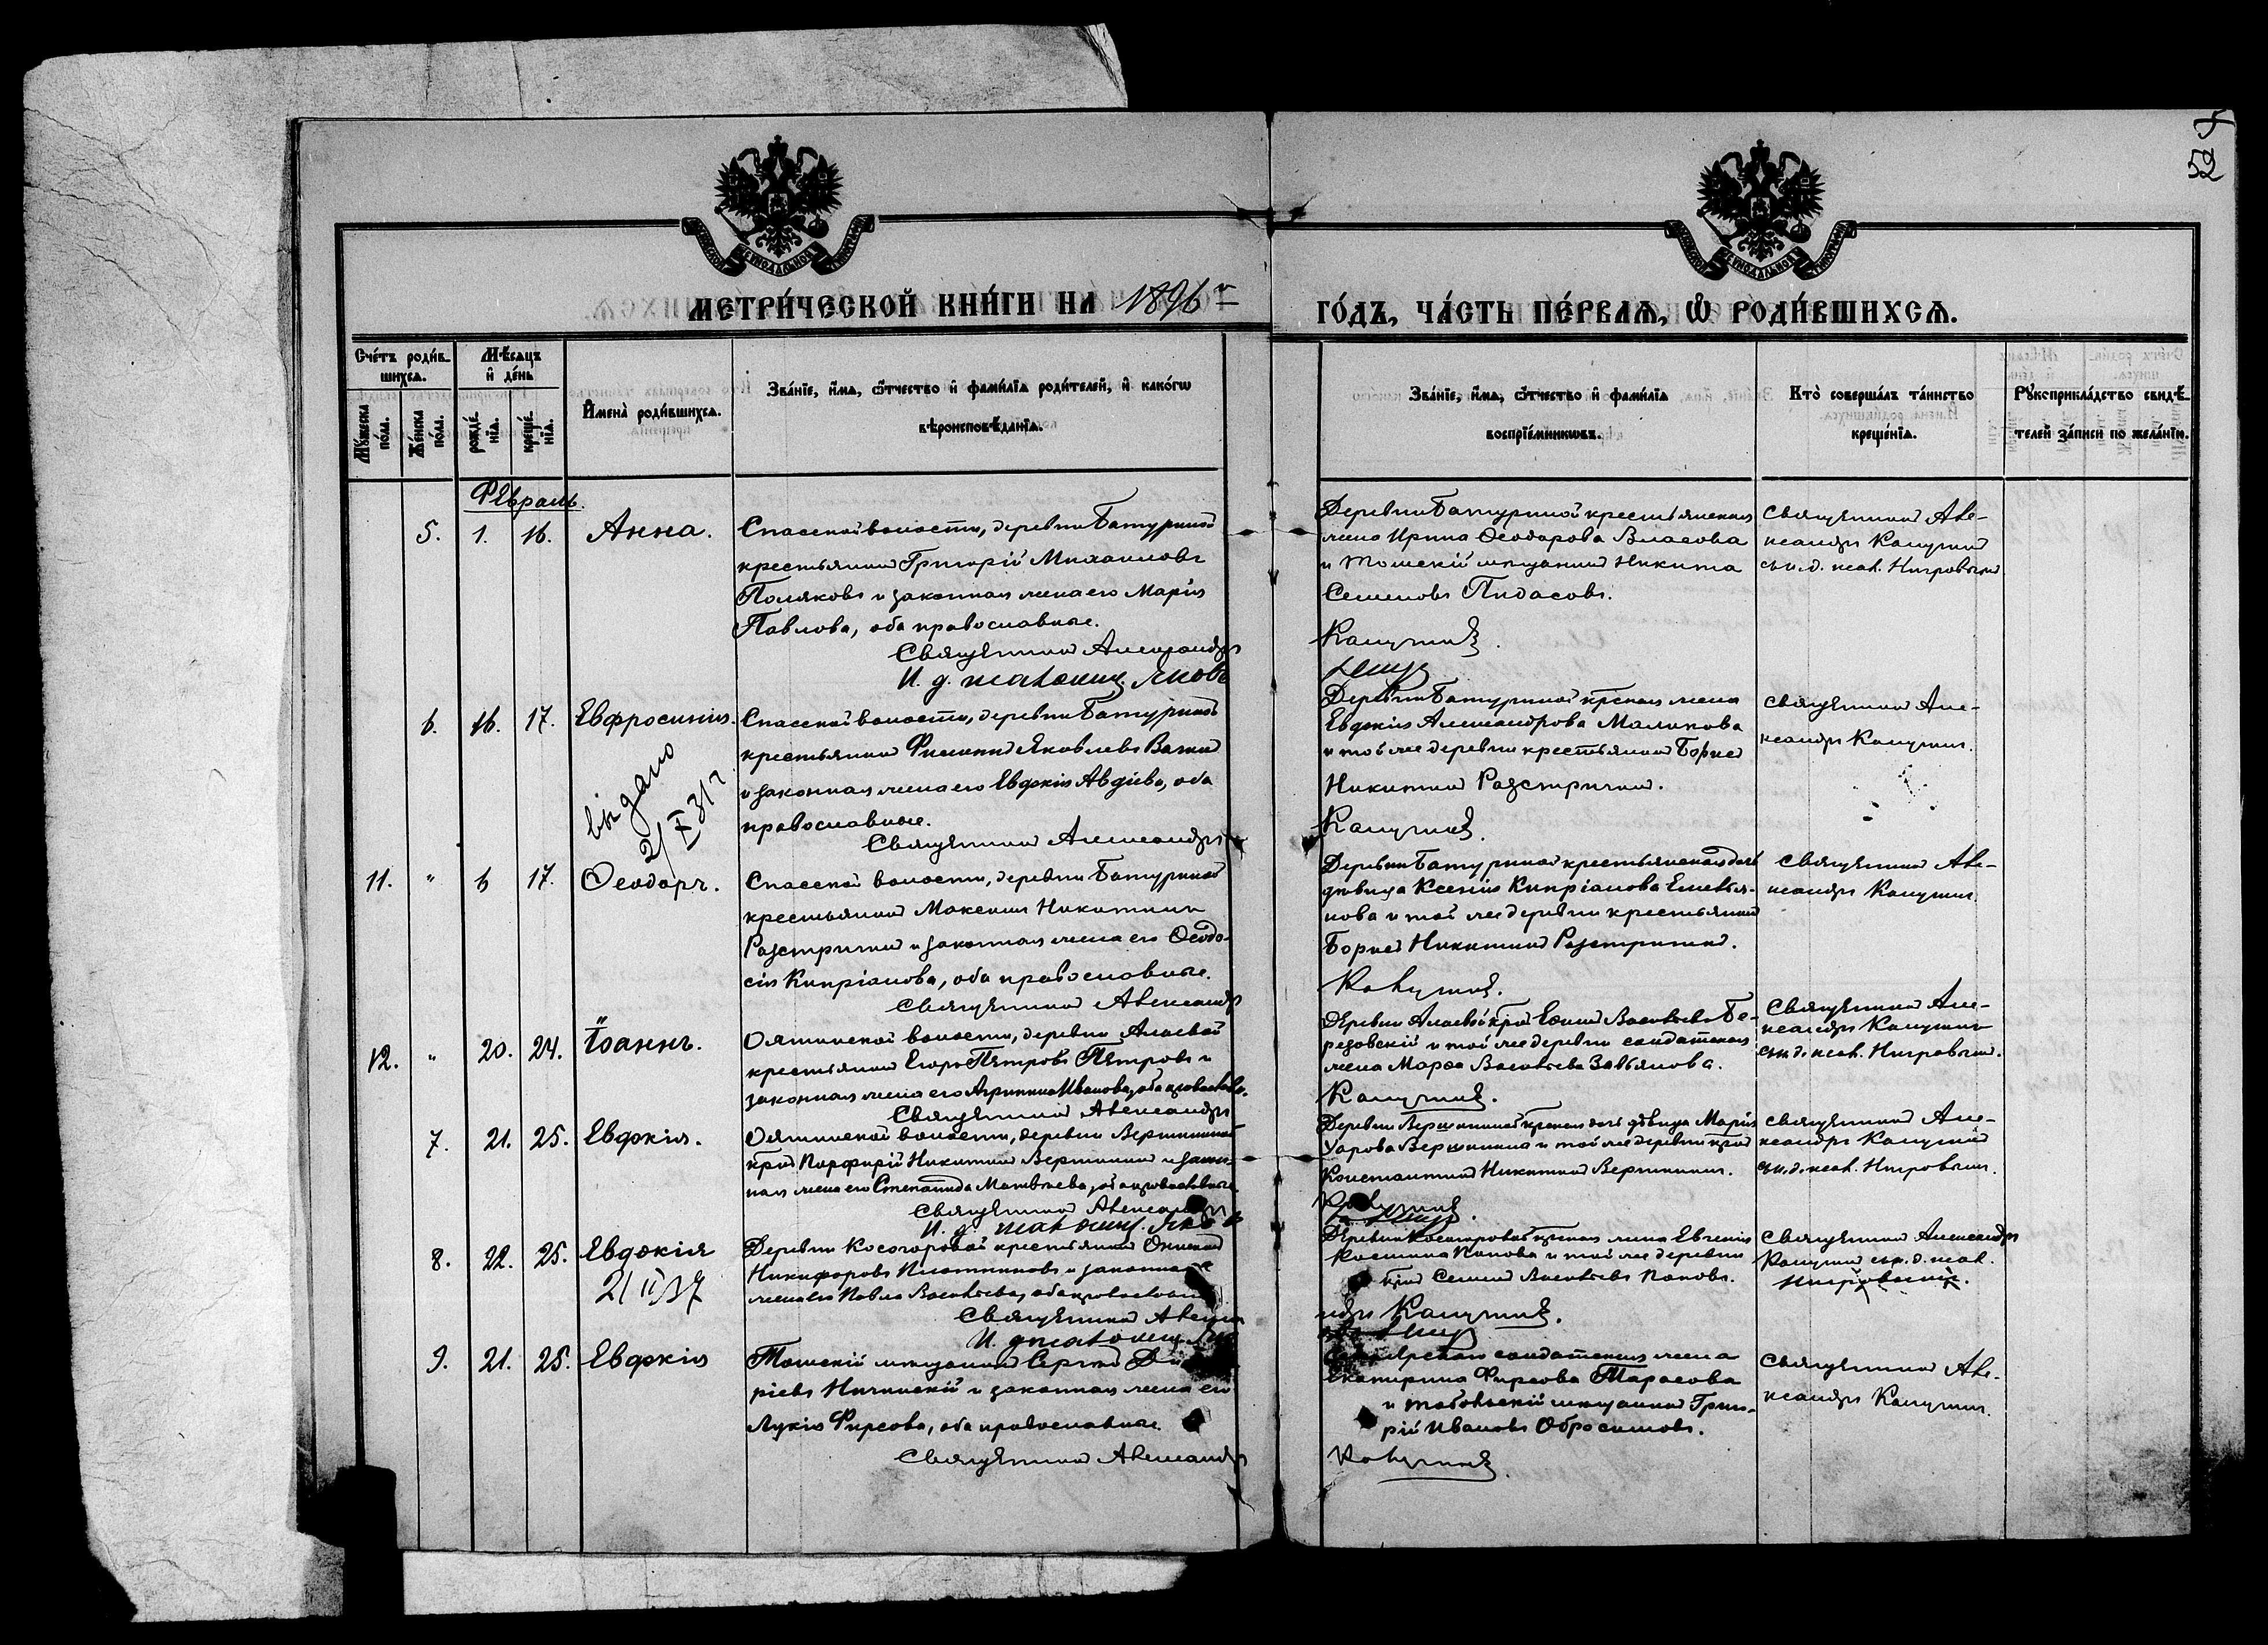 524
МЕТРИ́ЧЕСКОЙ КНИ́ГИ НА 1896 г
ГО́ДЪ, ЧА́СТЬ ПЕ́РВАЯ, Ѽ РОДИ́ВШИХСЯ.
Сче́тъ роди́в-
шихся.
Мꙋжеска по́ла.
Же́нска по́ла.
Мѣ́сяцъ
и҆ де́нь
рожде́-
нїѧ.
креще́-
нїѧ.
И҆мена̀ роди́вшихся.
Зва́нїе, и҆́мѧ, ѻ҆́тчество и҆ фами́лїѧ роди́телей, и҆ како́гѡ
вѣроисповѣ́данїѧ.
Зва́нїе, и҆́мѧ, ѻ҆́тчество и҆ фами́лїѧ
воспрїе́мникѡвъ.
Кто̀ соверша́лъ та́инство
креще́нїѧ.
Рꙋкоприкла́дство свидѣ́-
телей за́писи по жела́нїю.
Февраль.
5. 1. 16. Анна.
Спасской волости, деревни Батуриной
крестьянин Григорій Михаиловъ
Поляковъ и законная жена его Марія
Павлова, оба православные.
Священник Александръ
И. д. псаломщ. Яковъ
Деревни Батуриной крестьянская
жена Ирина Ѳеодорова Власова
и Томскій мѣщанин Никита
Семеновъ Пидасовъ.
Капустин.
Священник Але-
ксандръ Капустин
съ и. д. псал.
6. 16. 17. Евфросинія.
выдано
2/X 31 г.
Спасской волости, деревни Батуриной
крестьянин Филипп Яковлевъ
и законная жена его Евдокія Авдіева, оба
православные.
Священник Александръ
Деревни Батуриной крская жена
Евдокія Александрова Маликова
и той же деревни крестьянин Борис
Никитин Разстригин.
Капустин.
Священник Але-
ксандръ Капустин.
11. " 6 17. Ѳеодоръ.
Спасской волости, деревни Батуриной
крестьянин Максим Никитин
Разстригин и законная жена его Ѳеодо-
сія Кипріанова, оба православные.
Священник Александръ
Деревни Батуриной крестьянская дочь
дѣвица Ксенія Кипріанова Емелья-
нова и той же деревни крестьянин
Борис Никитин Разстригин.
Капустин.
Священник Але-
ксандръ Капустин.
12. " 20. 24. Іоаннъ.
волости, деревни Алаевой
крестьянин Егоръ Петровъ Петровъ и
законная жена его Агрипина Иванова, оба православн.
Священник Александръ
Деревни Алаевой крин Ефим Васильевъ Бе-
резовскій и той же деревни солдатская
жена Марѳа Васильева Завьялова.
Капустин.
Священник Але-
ксандръ Капустин
съ и. д. псал.
7. 21. 25. Евдокія.
волости, деревни Вершининой
крин Порфирій Никитин Вершинин и закон-
ная жена его Степанида Матвѣева, оба православные
Священник Александръ
И. д. псаломщ. Яковъ
Деревни Вершининой крская дочь дѣвица Марія
Уарова Вершинина и той же деревни крин
Константин Никитин Вершинин.
Капустин.
Священник Але-
ксандръ Капустин
съ и. д. псал.
8. 22. 25. Евдокія
2/II 37
Деревни Косогоровой крестьянин
Никифоровъ Плотниковъ и законная
жена его Павла Васильева, оба православн
Священник Алекса
И. д. псаломщ.
Деревни Косогоровой крская жена Евгенія
Попова и той же деревни
крин Семен Васильевъ Поповъ.
ндръ Капустин.
Священник Александръ
Капустин съ и. д. псал.
9. 21. 25. Евдокія
Томскій мѣщанин Сергѣй
ріевъ и законная жена его
Лукія Фирсова, оба православные.
Священник Александръ
солдатская жена
Екатерина Фирсова Тарасова
и тобольскій мѣщанин Григо-
рій Ивановъ Обросимовъ.
Капустин.
Священник Але-
ксандръ Капустин.